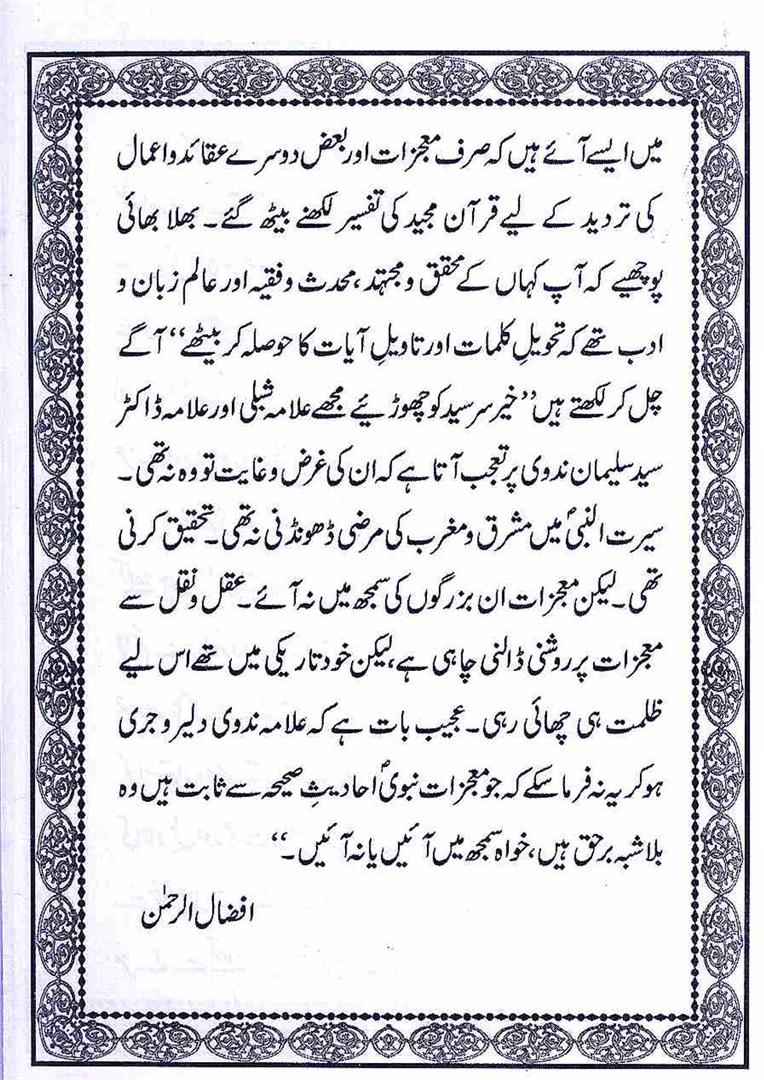 میں ایسے آئے ہیں کہ صرف معجزات اور بعض دوسرے عقائد و اعمال
کی تردید کے لیے قرآن مجید کی تفسیر لکھنے بیٹھ گئے۔ بھلا بھائی
پوچھیے کہ آپ کہاں کے محقق و مجتہد، محدث و فقیہ اور عالم زبان و
ادب تھے کہ تحویلِ کلمات اور تاویلِ آیات کا حوصلہ کر بیٹھے‘‘ آگے
چل کر لکھتے ہیں ’’خیر سرسید کو چھوڑئیے مجھے علامہ شبلی اور علامہ ڈاکٹر
سید سلیمان ندوی پر تعجب آتا ہے کہ ان کی غرض و غایت تو وہ نہ تھی۔
سیرت النبیؐ میں مشرق و مغرب کی مرضی ڈھونڈنی نہ تھی۔ تحقیق کرنی
تھی۔ لیکن معجزات ان بزرگوں کی سمجھ میں نہ آئے۔ عقل و نقل سے
معجزات پر روشنی ڈالنی چاہی ہے، لیکن خود تاریکی میں تھے اس لیے
ظلمت ہی چھائی رہی۔ عجیب بات ہے کہ علامہ ندوی دلیر و جری
ہو کر یہ نہ فرما سکے کہ جو معجزات نبویؐ احادیثِ صحیحہ سے ثابت ہیں وہ
بلاشبہ برحق ہیں، خواہ سمجھ میں آئیں یا نہ آئیں۔‘‘
افضال الرحمٰن